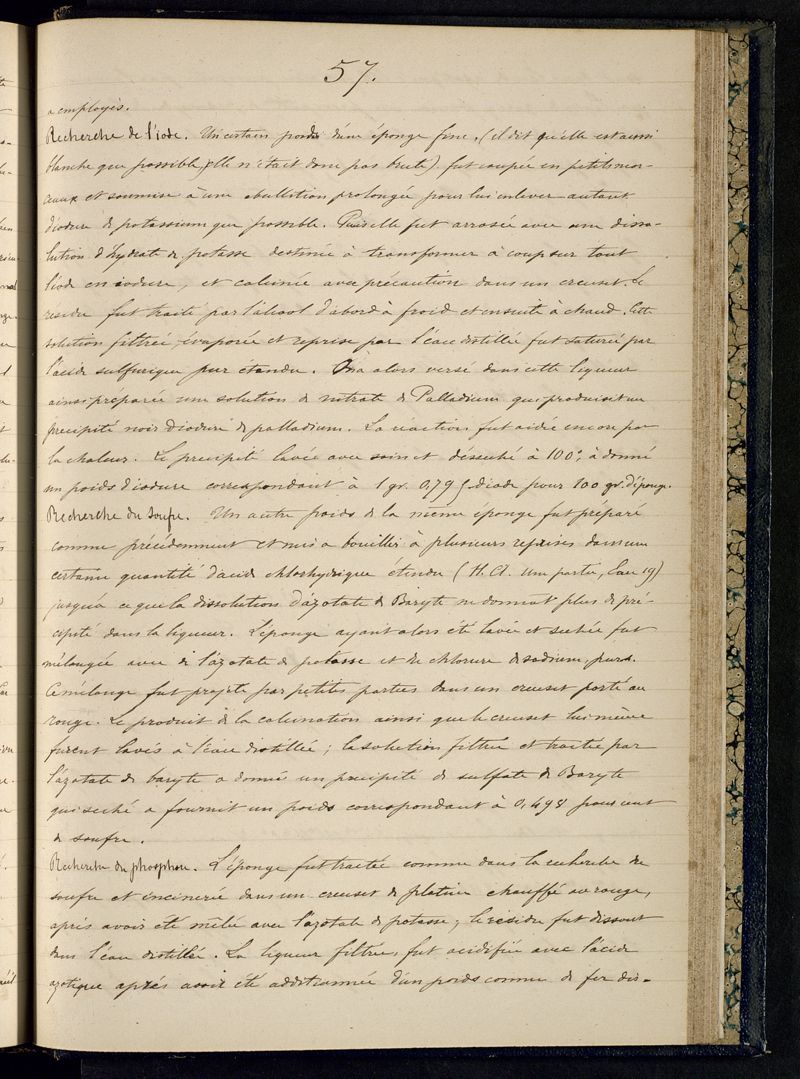 57.
a employés.
Recherche de l'iode. Un certain poids d'une éponge fine, (il dit qu'elle est aussi
blanche que possible, elle n'était donc pas brute) fut coupée en petits mor-
ceaux et soumise à une ébullition prolongée pour lui enlever autant
d'iodure de potassium que possible. Puis elle fut arrosée avec une disso-
lution d'hydrate de potasse destinée à transformer à coup sur tout
l'iode en iodure, et calcinée avec précaution dans un creuset. Le
residu fut traité par l'alcool d'abord à froid et ensuite à chaud. Cette
solution filtrée évaporée et reprise par l'eau distillée fut saturée par
l'acide sulfurique pur etendu. On a alors versé dans cette liqueur
ainsi préparée une solution de nitrate de Palladium qui produisit un
precipité noir d'iodure de palladium. La réaction fut aidée encore par
la chaleur. Le precipité lavé avec soin et desseché à 100°, à donné
un poids d'iodure correspondant à 1 gr. 0,795 d'iode pour 100 gr. d'éponge.
Recherche du Soufre. Un autre poids de la même éponge fut préparé
comme précédemment et mis a bouillir à plusieurs reprises dans une
certaine quantité d'acide chlorhydrique étendu (H.Cl. une partie, Eau 19)
jusqu'à ce que la dissolution d'azotate de Baryte ne donnat plus de pré-
cipité dans la liqueur. L'éponge ayant alors été lavée et sechée fut
mélangée avec de l'azotate de potasse et du chlorure de sodium purs.
Ce mélange fut projeté par petites parties dans un creuset porté au
rouge. Le produit de la calcination ainsi que le creuset lui même
furent lavés à l'eau distillée; la solution filtrée et traitée par
l'azotate de baryte a donné un precipité de sulfate de Baryte
qui seché a fournit un poids correspondant à 0,498 pour cent
de soufre.
Recherche du phosphore. L'éponge fut traitée comme dans la recherche du
soufre et incinerée dans un creuset de platine chauffé au rouge,
après avoir été mêlée avec l'azotate de potasse; le residu fut dissout
dans l'eau distillée. La liqueur filtrée, fut acidifiée avec l'acide
azotique après avoir été additionnée d'un poids connu de fer dis-